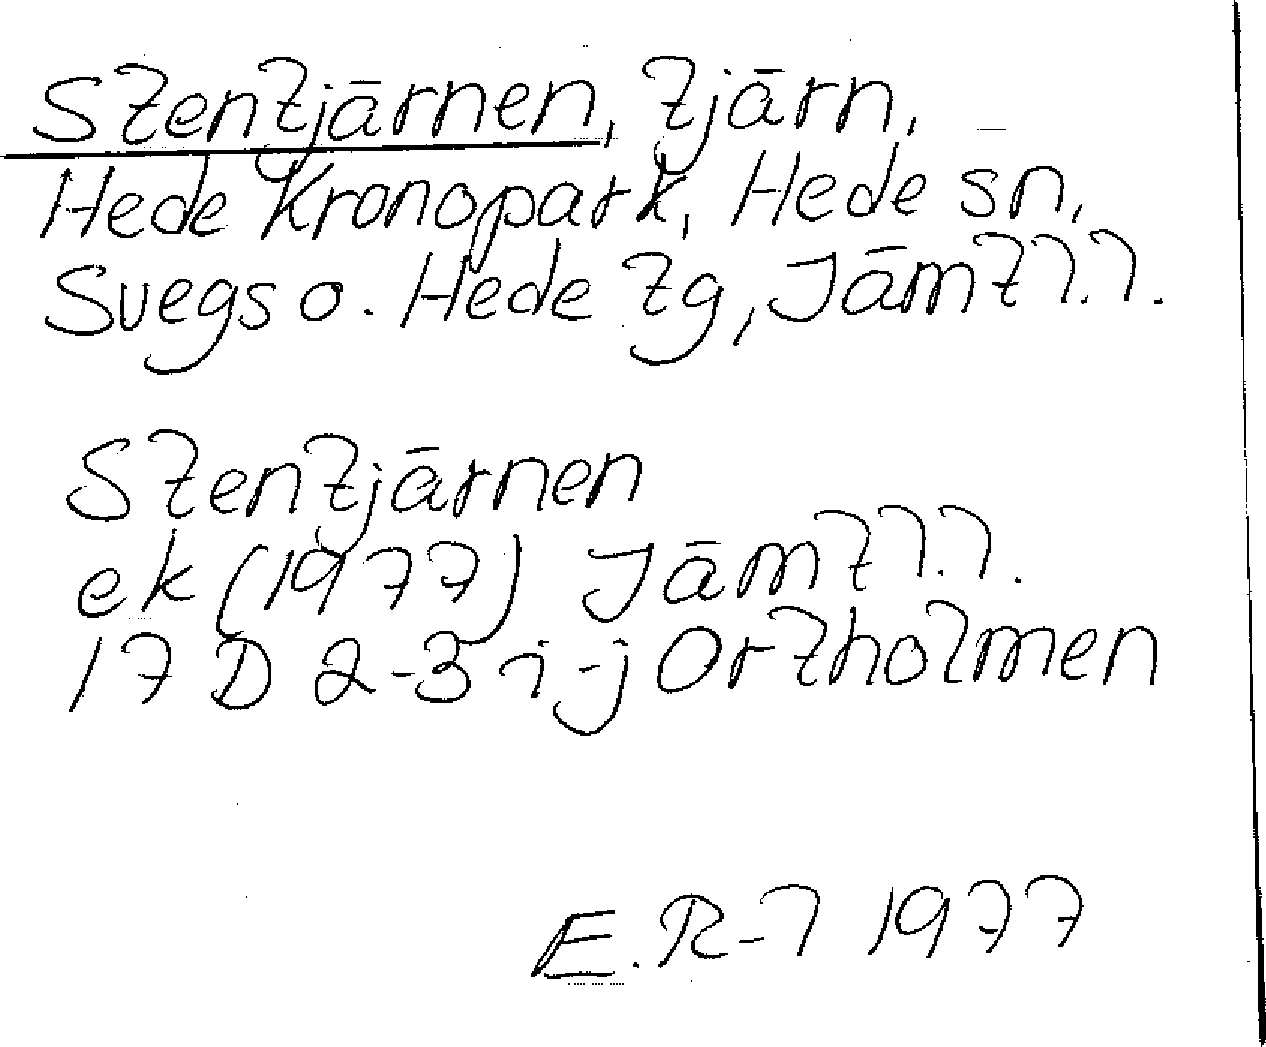 Stentjärnen, tjärn,
Hede Kronopark, Hede sn,
Svegs o. Hede tg, Jämtl.l.
Stentjärnen
ek (1977) Jämtl.l.
17 D 2-3 i-j Ortholmen
E.R-l 1977